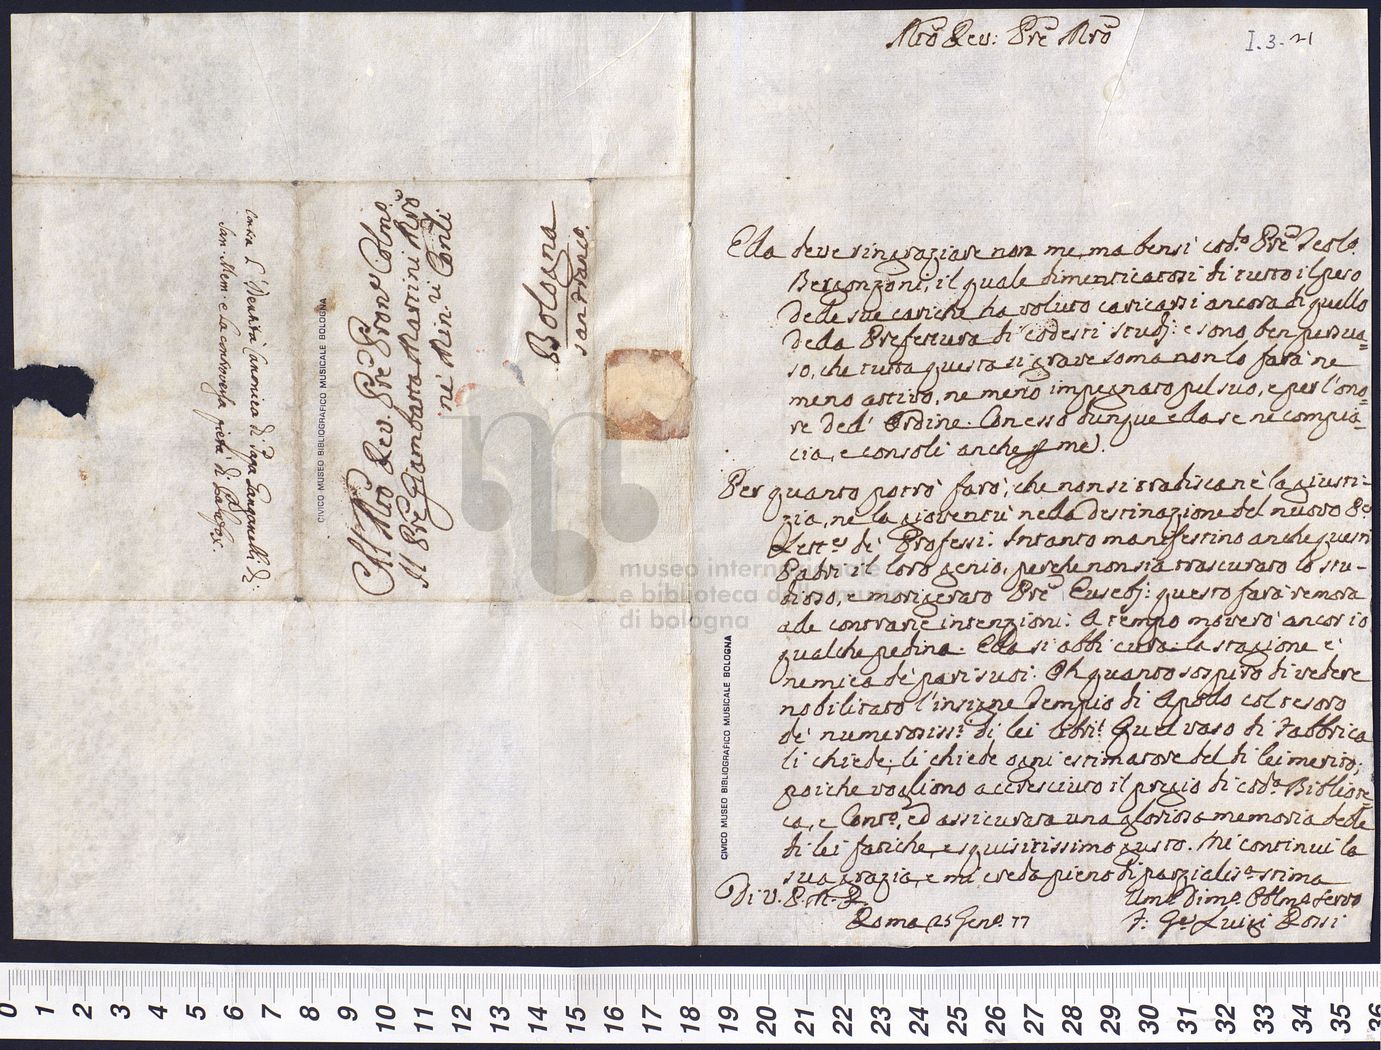 Mrõ Rev: Prẽ Mrõ
I. 3. 21
Ella deve ringraziare non me, ma bensi cod.º Prẽ Teolo
Bergonzoni, il quale dimenticatosi di tutto il peso
delle sue cariche ha voluto caricarsi ancora di quello
della Prefettura di codesti studj: e sono ben persua=
so, che tutta questa si grave soma non lo farà ne
meno attivo, ne meno impegnato pel suo, e per l'ono=
re dell' Ordine. Con esso dunque ella se ne compia=
cia, e consoli anche me.
Per quanto potrò farò, che non si tradisca nè la giusti-
zia, ne la gioventù nella destinazione del nuovo
Lett.e de' Professi: Intanto manifestino anche questi
Padri il loro genio, perche non sia trascurato lo stu-
dioso, e morigerato Prẽ Eusebj: questo farà remora
alle contrarie intenzioni: A tempo moverò ancor io
qualche pedina. Ella si abbi cura: la stagione è
nemica de' pari suoi: Oh quanto sospiro di vedere
nobilitato l'insigne Tempio di Apollo col tesoro
de' numerosiss.i di lei libri! Quel vaso di Fabbrica
li chiede; li chiede ogni estimatore del di lei merito;
poiche vogliono accresciuto il pregio di cod.a Bibliote=
ca, e Conv.º, ed assicurata una gloriosa memoria delle
di lei fatiche, e squisitissimo gusto. Mi continui la
sua grazia, e mi creda pieno di parzialis.a stima
Di V. P. M. R.
Umo Dimo Obblmo Servo
Roma 25 Gen.º 77
F: Luigi Rossi
Al Mrõ Rev. Prẽ Prẽ Pron.e Colmo
Il Prẽ Giambatta Martini Mrõ
ne' Min:ri Conti
Bologna
san Franco.
Contra l'Identità Canonica di Papa Ganganelli di
San. Mem: e la controversa pietà di Palafox.
CIVICO MUSEO BIBLIOGRAFICO MUSICALE BOLOGNA
CIVICO MUSEO BIBLIOGRAFICO MUSICALE BOLOGNA
museo internazionale
e biblioteca della musica
di bologna
0 1 2 3 4 5 6 7 8 9 10 11 12 13 14 15 16 17 18 19 20 21 22 23 24 25 26 27 28 29 30 31 32 33 34 35 36